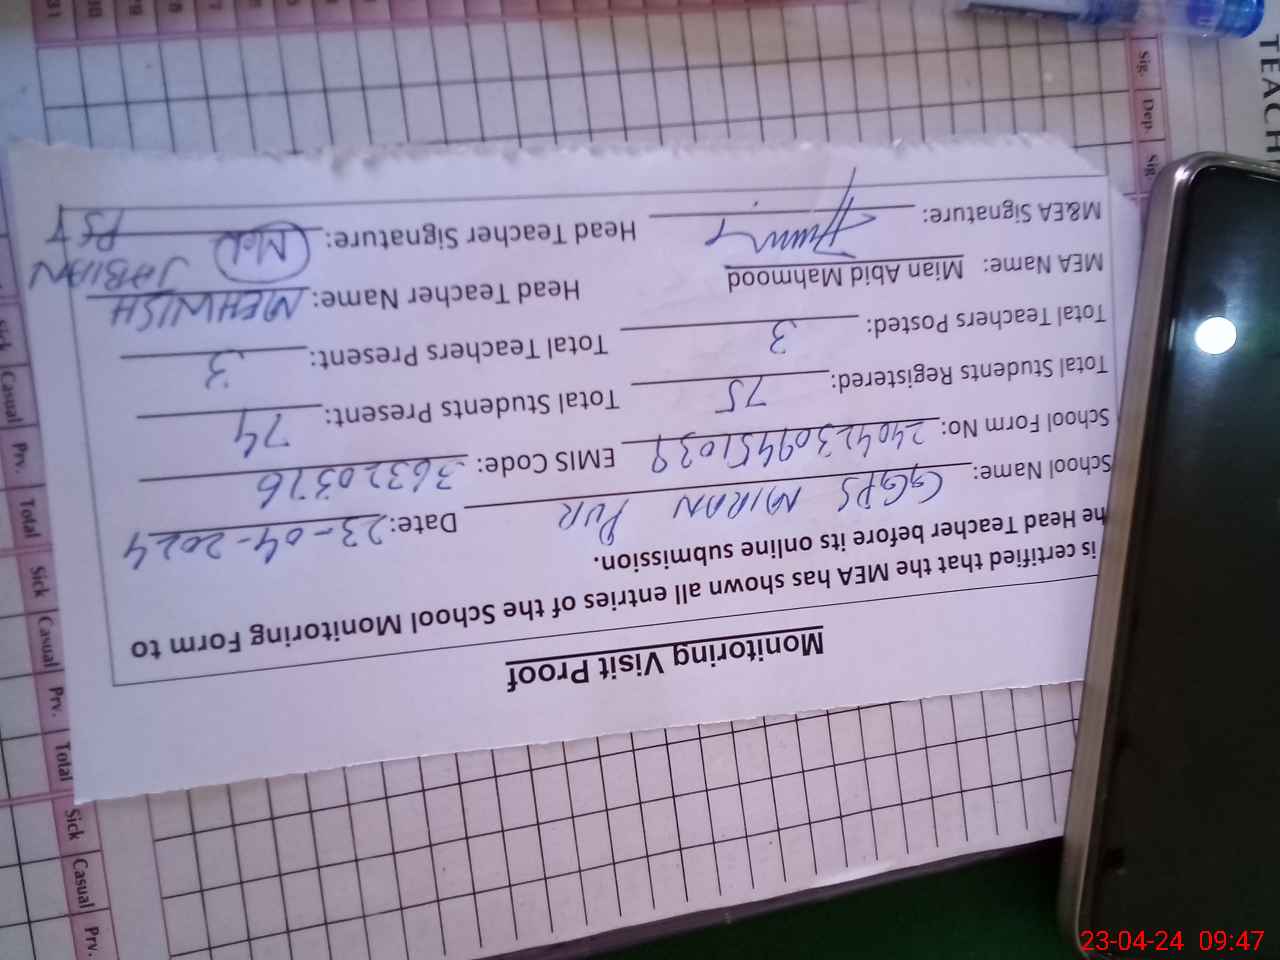 Monitoring Visit Proof
is certified that the MEA has shown all entries of the School Monitoring Form to
he Head Teacher before its online submission.
School Name: GGPS MIRAN PUR Date: 23-04-2024
School Form No: 24042309451039 EMIS Code: 36320376
Total Students Registered: 75 Total Students Present: 74
Total Teachers Posted: 3 Total Teachers Present: 3
MEA Name: Mian Abid Mahmood Head Teacher Name: MEHWISH
JABIAN
M&EA Signature: Head Teacher Signature: PST
TEACH
Sig. Dep. Sig
Sick Casual Prv. Total Sick Casual Prv. Total Sick Casual Prv.
23-04-24 09:47